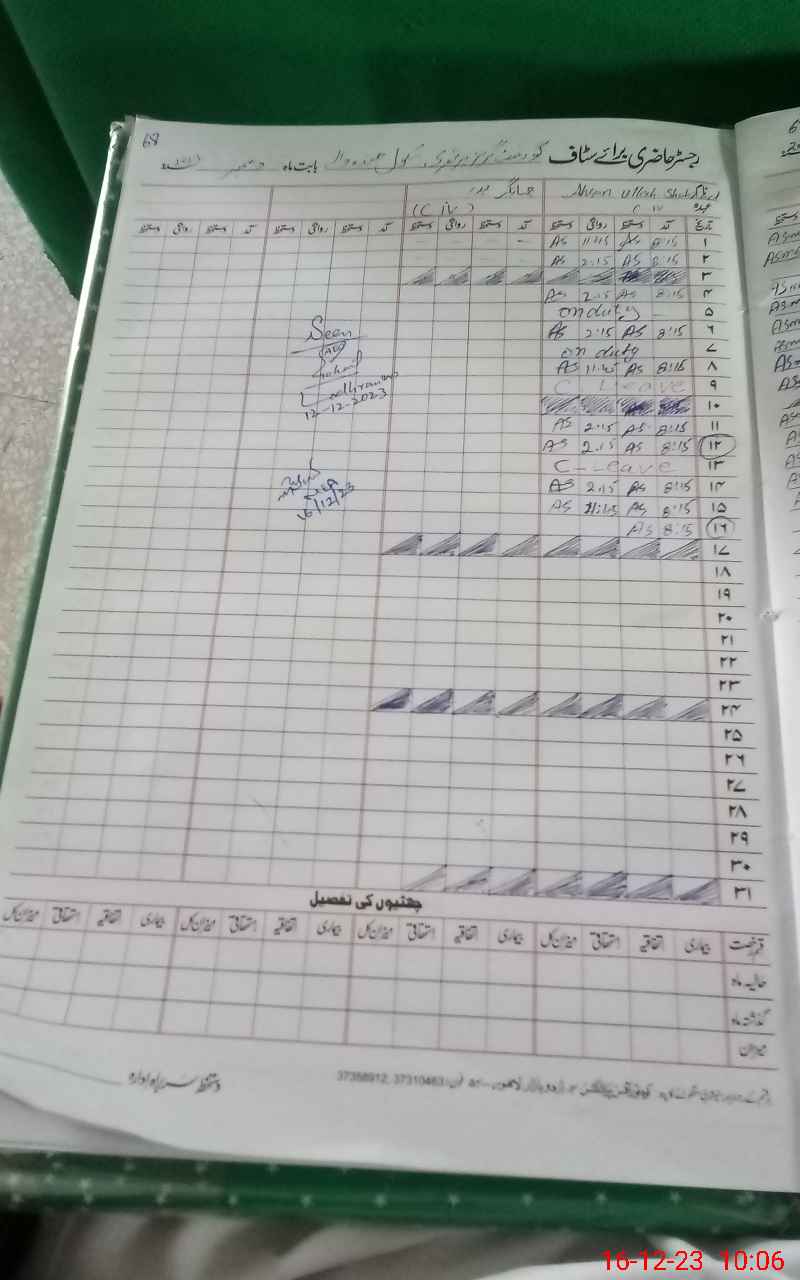 68
رجسٹر حاضری برائے سٹاف گورنمنٹ گرلز پرائمری سکول بابت ماہ دسمبر
Ahsan Ullah Shahid
(C iv) C iv
عہدہ
تاریخ آمد دستخط روانگی دستخط آمد دستخط روانگی دستخط آمد دستخط روانگی دستخط آمد دستخط روانگی دستخط
۱ 8:15 AS 11:45 AS
۲ 8:15 AS 2:15 AS
۳
۴ 8:15 AS 2:15 AS
۵ on duty
۶ 8:15 AS 2:15 AS
۷ on duty
۸ 8:15 AS 11:45 AS
۹ C-Leave
۱۰
۱۱ 8:15 AS 2:15 AS
۱۲ 8:15 AS 2:15 AS
۱۳ C-Leave
۱۴ 8:15 AS 2:15 AS
۱۵ 8:15 AS 11:45 AS
۱۶ 8:15 AS
۱۷
۱۸
۱۹
۲۰
۲۱
۲۲
۲۳
۲۴
۲۵
۲۶
۲۷
۲۸
۲۹
۳۰
۳۱
Seen
AEO
Lodhran
12-12-2023
16/12/23
چھٹیوں کی تفصیل
قسم رخصت بیماری اتفاقیہ استحقاقی میزان کل بیماری اتفاقیہ استحقاقی میزان کل بیماری اتفاقیہ استحقاقی میزان کل بیماری اتفاقیہ استحقاقی میزان کل
حالیہ ماہ
گذشتہ ماہ
میزان
اردو بازار لاہور فون: 37310463, 37358912
دستخط سربراہ ادارہ
16-12-23 10:06